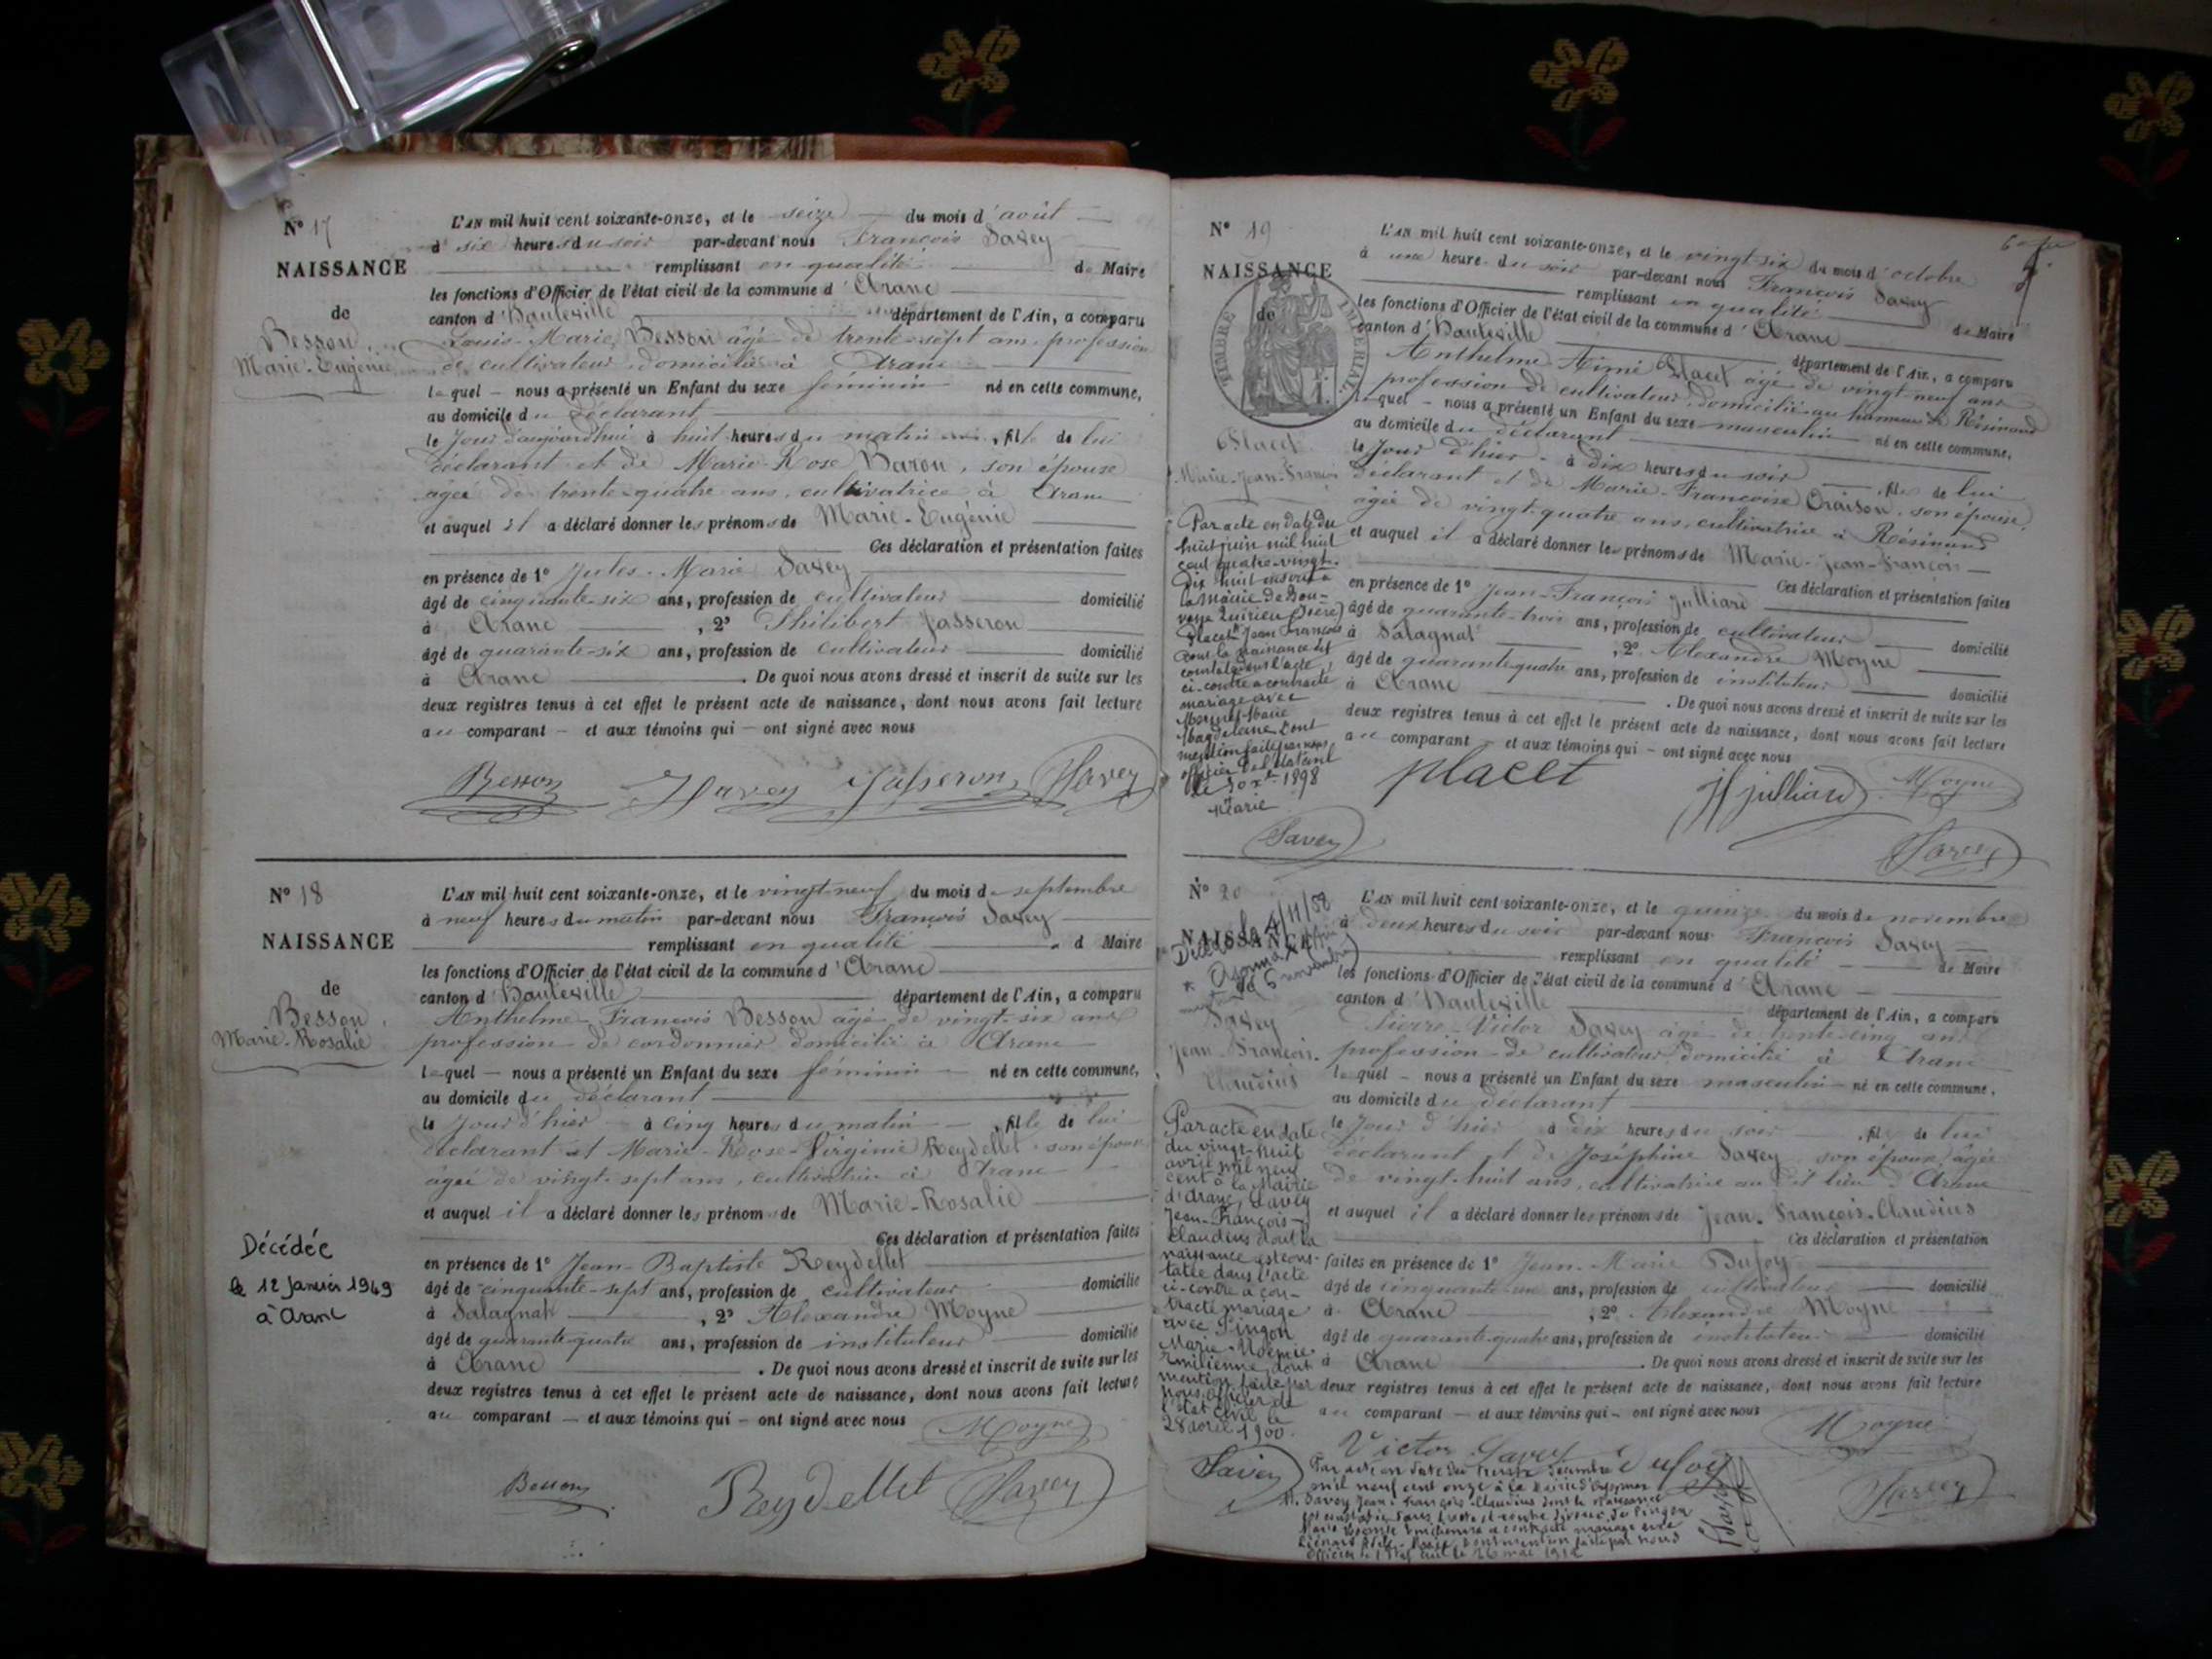 N° 17
NAISSANCE
de
Besson
Marie-Eugénie
L'AN mil huit cent soixante-onze, et le seize du mois d'août
à six heures du soir par-devant nous François Savey
remplissant en qualité de Maire
les fonctions d'Officier de l'état civil de la commune d'Aranc
canton d'Hauteville département de l'Ain, a comparu
Louis-Marie Besson âgé de trente-sept ans profession
de cultivateur domicilié à Aranc
lequel — nous a présenté un Enfant du sexe féminin né en cette commune,
au domicile du déclarant
le jour d'aujourd'hui à huit heures du matin, fille de lui
déclarant et de Marie-Rose Baron, son épouse
âgée de trente-quatre ans, cultivatrice à Aranc
et auquel il a déclaré donner les prénoms de Marie-Eugénie
Ces déclaration et présentation faites
en présence de 1° Jules-Marie Savey
âgé de cinquante-six ans, profession de cultivateur domicilié
à Aranc, 2° Philibert Jasseron
âgé de quarante-six ans, profession de cultivateur domicilié
à Aranc. De quoi nous avons dressé et inscrit de suite sur les
deux registres tenus à cet effet le présent acte de naissance, dont nous avons fait lecture
au comparant — et aux témoins qui — ont signé avec nous
Besson Savey Jasseron Savey
N° 18
NAISSANCE
de
Besson
Marie-Rosalie
L'AN mil huit cent soixante-onze, et le vingt-neuf du mois de septembre
à neuf heures du matin par-devant nous François Savey
remplissant en qualité d Maire
les fonctions d'Officier de l'état civil de la commune d'Aranc
canton d'Hauteville département de l'Ain, a comparu
Anthelme-François Besson âgé de vingt-six ans
profession de cordonnier domicilié à Aranc
lequel — nous a présenté un Enfant du sexe féminin né en cette commune,
au domicile du déclarant
le jour d'hier à cinq heures du matin, fille de lui
déclarant et Marie-Rose-Virginie Reydellet son épouse
âgée de vingt-sept ans, cultivatrice à Aranc
et auquel il a déclaré donner les prénoms de Marie-Rosalie
Ces déclaration et présentation faites
en présence de 1° Jean-Baptiste Reydellet
âgé de cinquante-sept ans, profession de cultivateur domicilié
à Salagnat, 2° Alexandre Moyne
âgé de quarante-quatre ans, profession de instituteur domicilié
à Aranc. De quoi nous avons dressé et inscrit de suite sur les
deux registres tenus à cet effet le présent acte de naissance, dont nous avons fait lecture
au comparant — et aux témoins qui — ont signé avec nous
Moyne
Besson Reydellet Savey
Décédée
le 12 Janvier 1949
à Aranc
N° 19
NAISSANCE
de
TIMBRE IMPERIAL
Placet
Marie-Jean-François
L'AN mil huit cent soixante-onze, et le vingt-six du mois d'octobre
à une heure du soir par-devant nous François Savey
remplissant en qualité de Maire
les fonctions d'Officier de l'état civil de la commune d'Aranc
canton d'Hauteville département de l'Ain, a comparu
Anthelme Aimé Placet âgé de vingt-neuf ans
profession de cultivateur domicilié au hameau de Résinand
lequel — nous a présenté un Enfant du sexe masculin né en cette commune,
au domicile du déclarant
le jour d'hier à dix heures du soir, fils de lui
déclarant et de Marie-Françoise Oraison, son épouse,
âgée de vingt-quatre ans, cultivatrice à Résinand
et auquel il a déclaré donner les prénoms de Marie-Jean-François
Ces déclaration et présentation faites
en présence de 1° Jean-François Julliard
âgé de quarante-trois ans, profession de cultivateur domicilié
à Salagnat, 2° Alexandre Moyne
âgé de quarante-quatre ans, profession de instituteur domicilié
à Aranc. De quoi nous avons dressé et inscrit de suite sur les
deux registres tenus à cet effet le présent acte de naissance, dont nous avons fait lecture
au comparant — et aux témoins qui — ont signé avec nous
placet Jf julliard Moyne
Savey
Par acte en date du
huit juin mil huit
cent quatre-vingt
dix huit inscrit à
la Mairie de Bou-
vesse Quirieu (Isère)
Placet Jean François
dont la naissance est
constatée dans l'acte
ci-contre a contracté
mariage avec
Marie
Magdeleine dont
mention faite par nous
officier de l'état civil
1898
Savey
N° 20
NAISSANCE
Décédé le 4/11/58
Savey
Jean-François-
Claudius
L'AN mil huit cent soixante-onze, et le quinze du mois de novembre
à deux heures du soir par-devant nous François Savey
remplissant en qualité de Maire
les fonctions d'Officier de l'état civil de la commune d'Aranc
canton d'Hauteville département de l'Ain, a comparu
Pierre-Victor Savey âgé de trente-cinq ans
profession de cultivateur domicilié à Aranc
lequel — nous a présenté un Enfant du sexe masculin né en cette commune,
au domicile du déclarant
le jour d'hier à dix heures du soir, fils de lui
déclarant et de Joséphine Savey son épouse âgée
de vingt-huit ans, cultivatrice au dit lieu d'Aranc
et auquel il a déclaré donner les prénoms de Jean-François-Claudius
Ces déclaration et présentation
faites en présence de 1° Jean-Marie Dufoy
âgé de cinquante-un ans, profession de cultivateur domicilié
à Aranc, 2° Alexandre Moyne
âgé de quarante-quatre ans, profession de instituteur domicilié
à Aranc. De quoi nous avons dressé et inscrit de suite sur les
deux registres tenus à cet effet le présent acte de naissance, dont nous avons fait lecture
au comparant — et aux témoins qui — ont signé avec nous
Victor Savey Dufoy Moyne
Savey
Par acte en date
du vingt-huit
avril mil neuf
cent à la Mairie
d'Aranc, Savey
Jean-François-
Claudius dont la
naissance est cons-
tatée dans l'acte
ci-contre a con-
tracté mariage
avec Pingon
Marie-Noémie-
Emilienne, dont
mention faite par
nous, officier de
l'état civil le
28 avril 1900.
Savey
Par acte en date du trente décembre
mil neuf cent onze à la Mairie d'Oyonnax
M. Savey Jean-François-Claudius dont la naissance
est constatée dans l'acte ci-contre divorcé de Pingon
Marie Noémie Emilienne a contracté mariage avec
dont mention faite par nous
Officier de l'Etat civil le 26 mai 1912